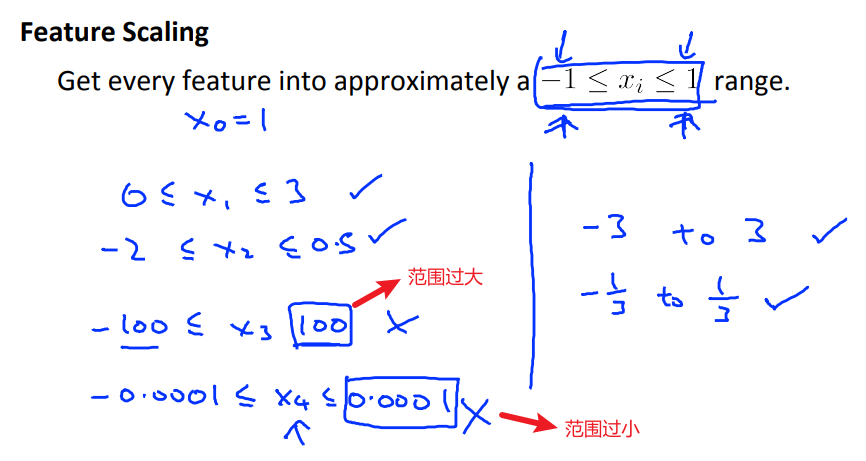 Feature Scaling
Get every feature into approximately a -1 ≤ xᵢ ≤ 1 range.
x₀=1
0 ≤ x₁ ≤ 3 ✓
-2 ≤ x₂ ≤ 0.5 ✓
范围过大
-100 ≤ x₃ 100 ×
-0.0001 ≤ x₄ ≤ 0.0001 ×
范围过小
-3 to 3 ✓
-1/3 to 1/3 ✓